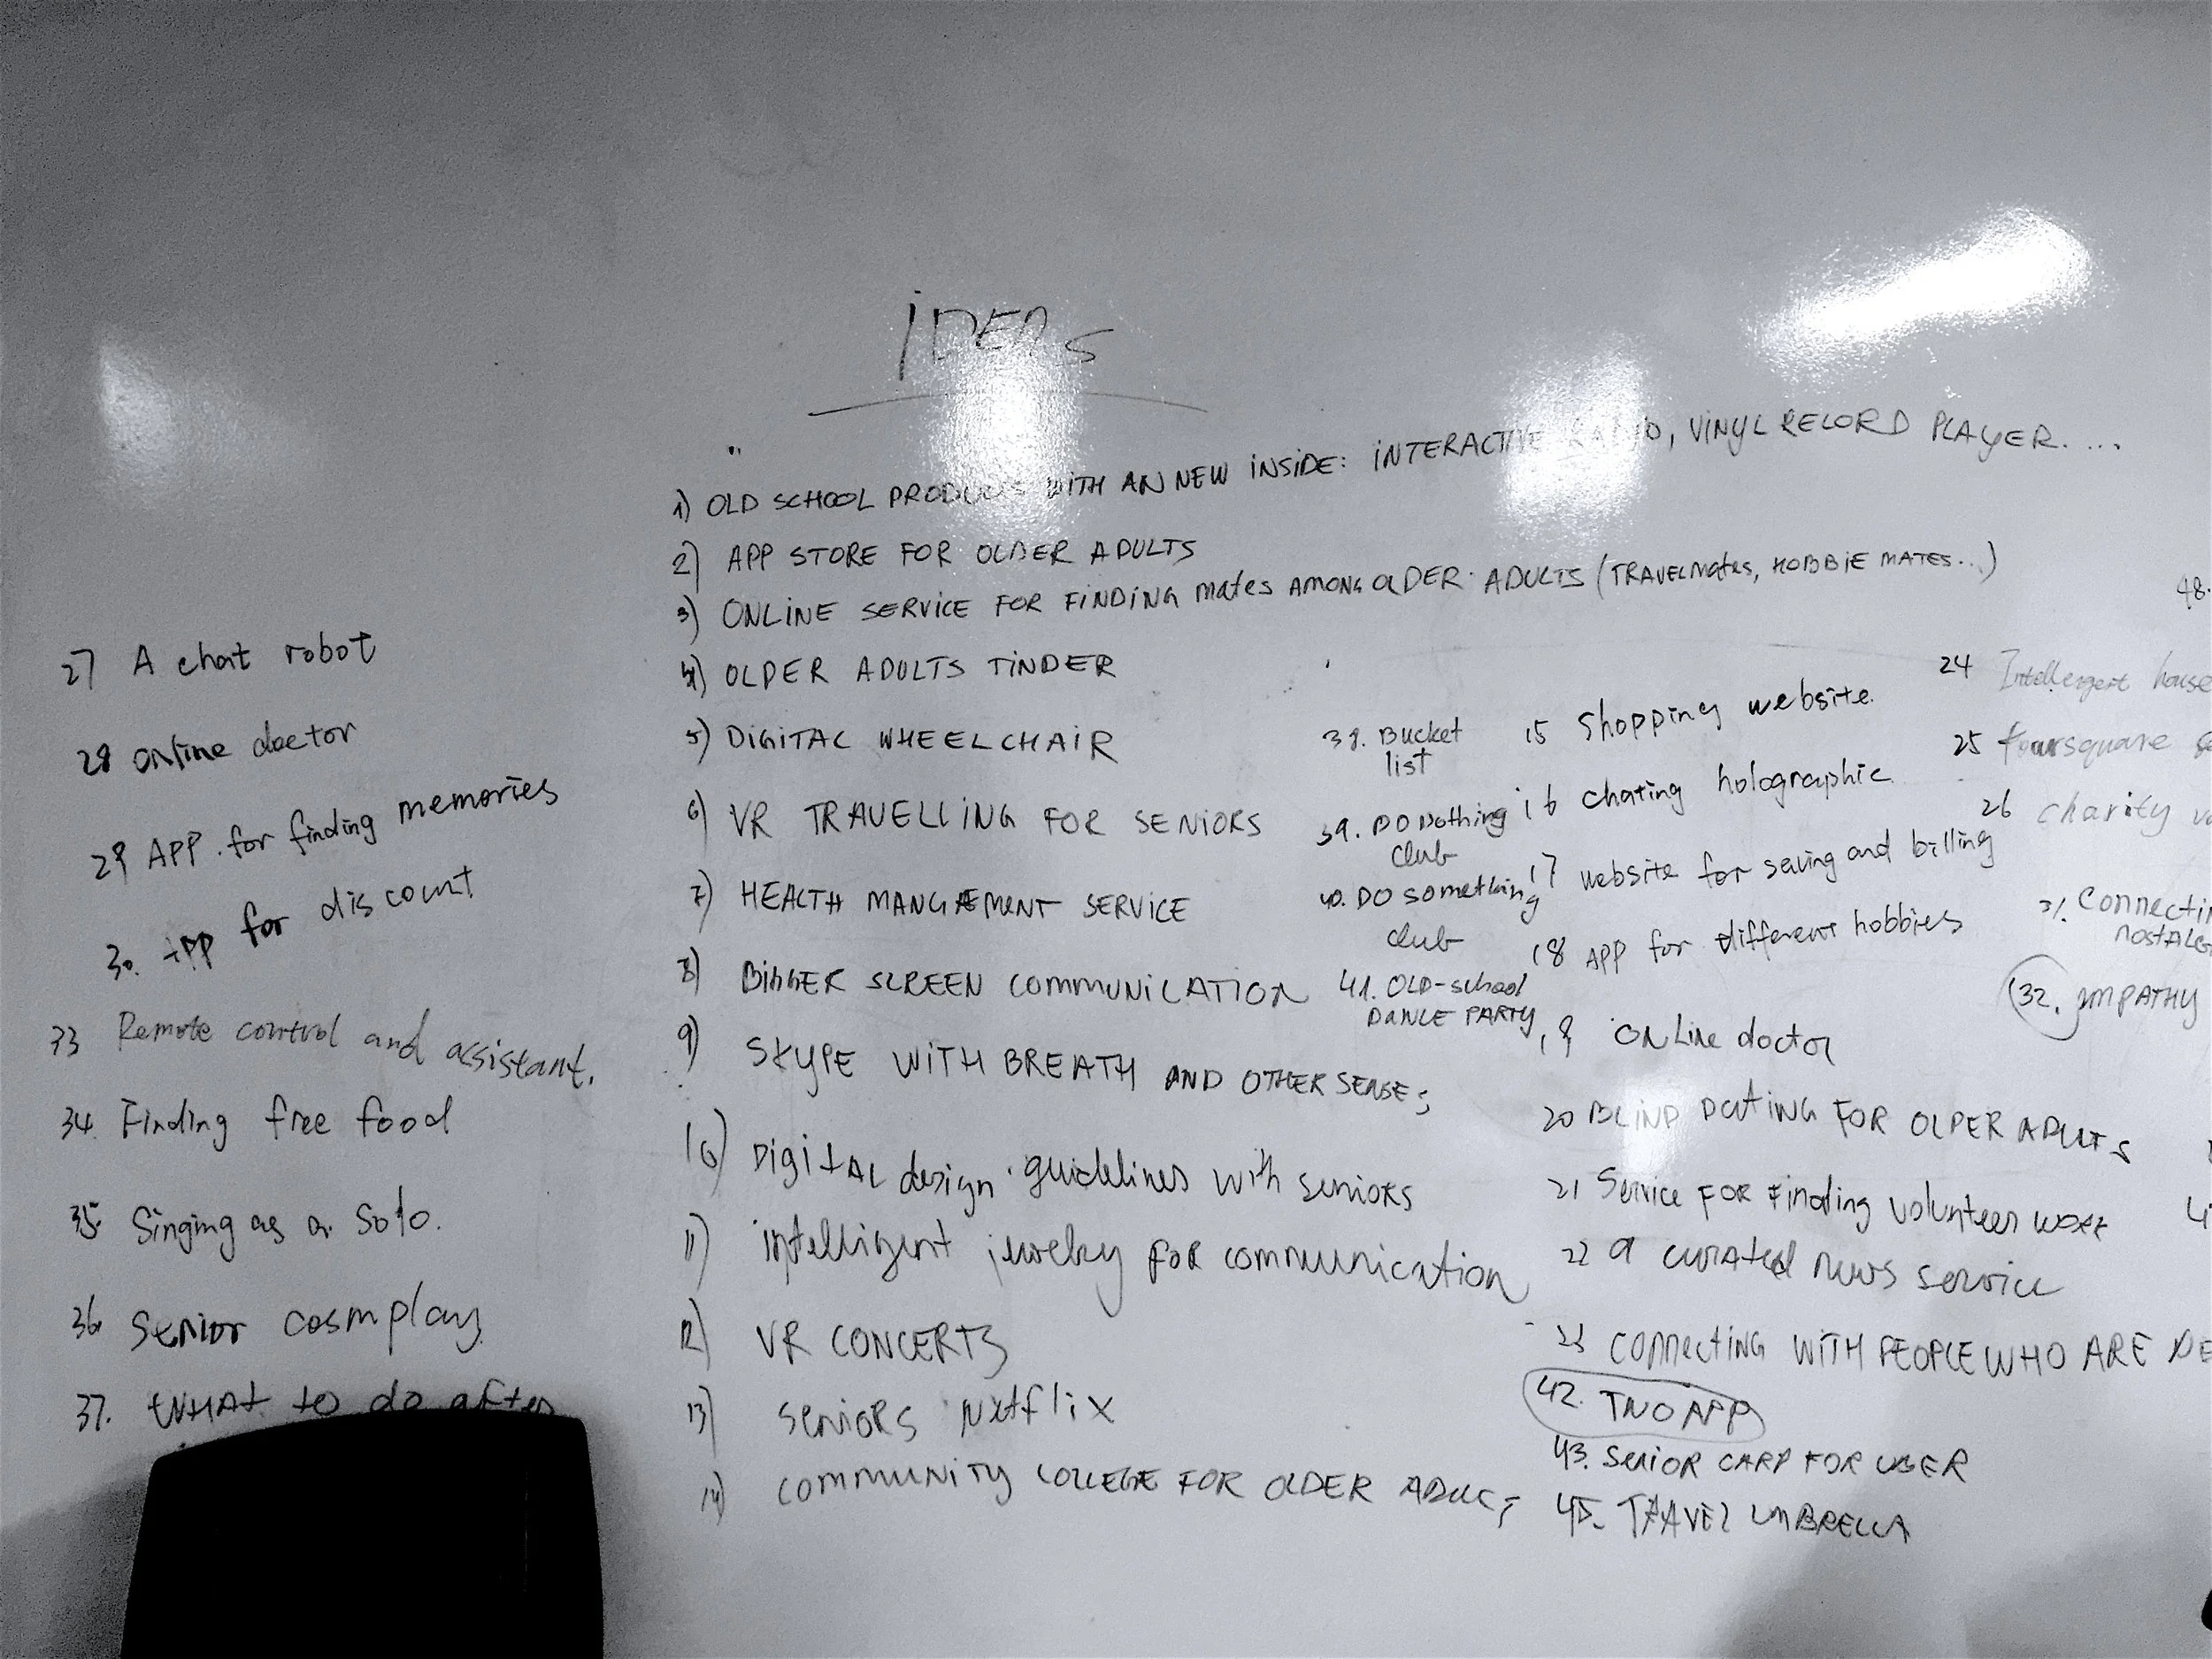 IDEAS
1) OLD SCHOOL PRODUCTS WITH AN NEW INSIDE: INTERACTIVE RADIO, VINYL RECORD PLAYER....
2) APP STORE FOR OLDER ADULTS
3) ONLINE SERVICE FOR FINDING mates AMONG OLDER ADULTS (TRAVELmates, HOBBIE MATES...)
4) OLDER ADULTS TINDER
5) DIGITAL WHEELCHAIR
6) VR TRAVELLING FOR SENIORS
7) HEALTH MANGAEMENT SERVICE
8) BIGGER SCREEN COMMUNICATION
9) SKYPE WITH BREATH AND OTHER SENSES
10) DIGITAL design guidelines with seniors
11) intelligent jewelry FOR communication
12) VR CONCERTS
13) SENIORS Netflix
14) COMMUNITY COLLEGE FOR OLDER ADULTS
38. Bucket
list
39. DO Nothing
club
40. DO something
club
41. OLD-school
DANCE PARTY
15 Shopping website.
16 chating holographic
17 website for saving and billing
18 APP for different hobbies
19 ONLine doctor
20 BLIND DATING FOR OLDER ADULTS
21 Service FOR Finding volunteer work
22 a curated news service
23 connecting WITH PEOPLE WHO ARE
42. TNO APP
43. SENIOR CARD FOR UBER
45. TRAVEL UMBRELLA
48.
24 Intellergert house
25 foursquare
26 charity
31.
32. EMPATHY
27 A chat robot
28 online doctor
29 APP for finding memories
30. APP for discount
33 Remote control and assistant.
34. Finding free food
35. Singing as a Solo.
36 Senior cosmplay
37. WHAT to do after